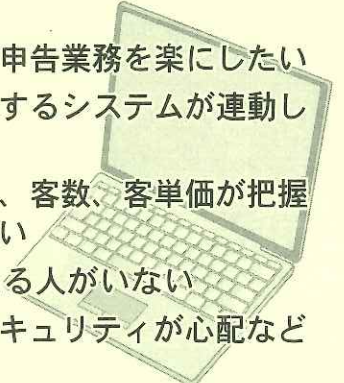 申告業務を楽にしたい
するシステムが連動し
、客数、客単価が把握
い
る人がいない
キュリティが心配など